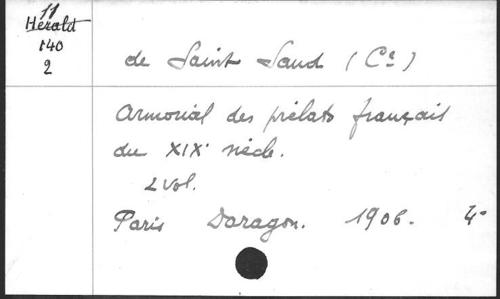 11
Herald
140
2
de Saint Saud (Cte)
Armorial des prélats français
du XIXe siècle.
2 vol.
Paris Daragon. 1906. 4°